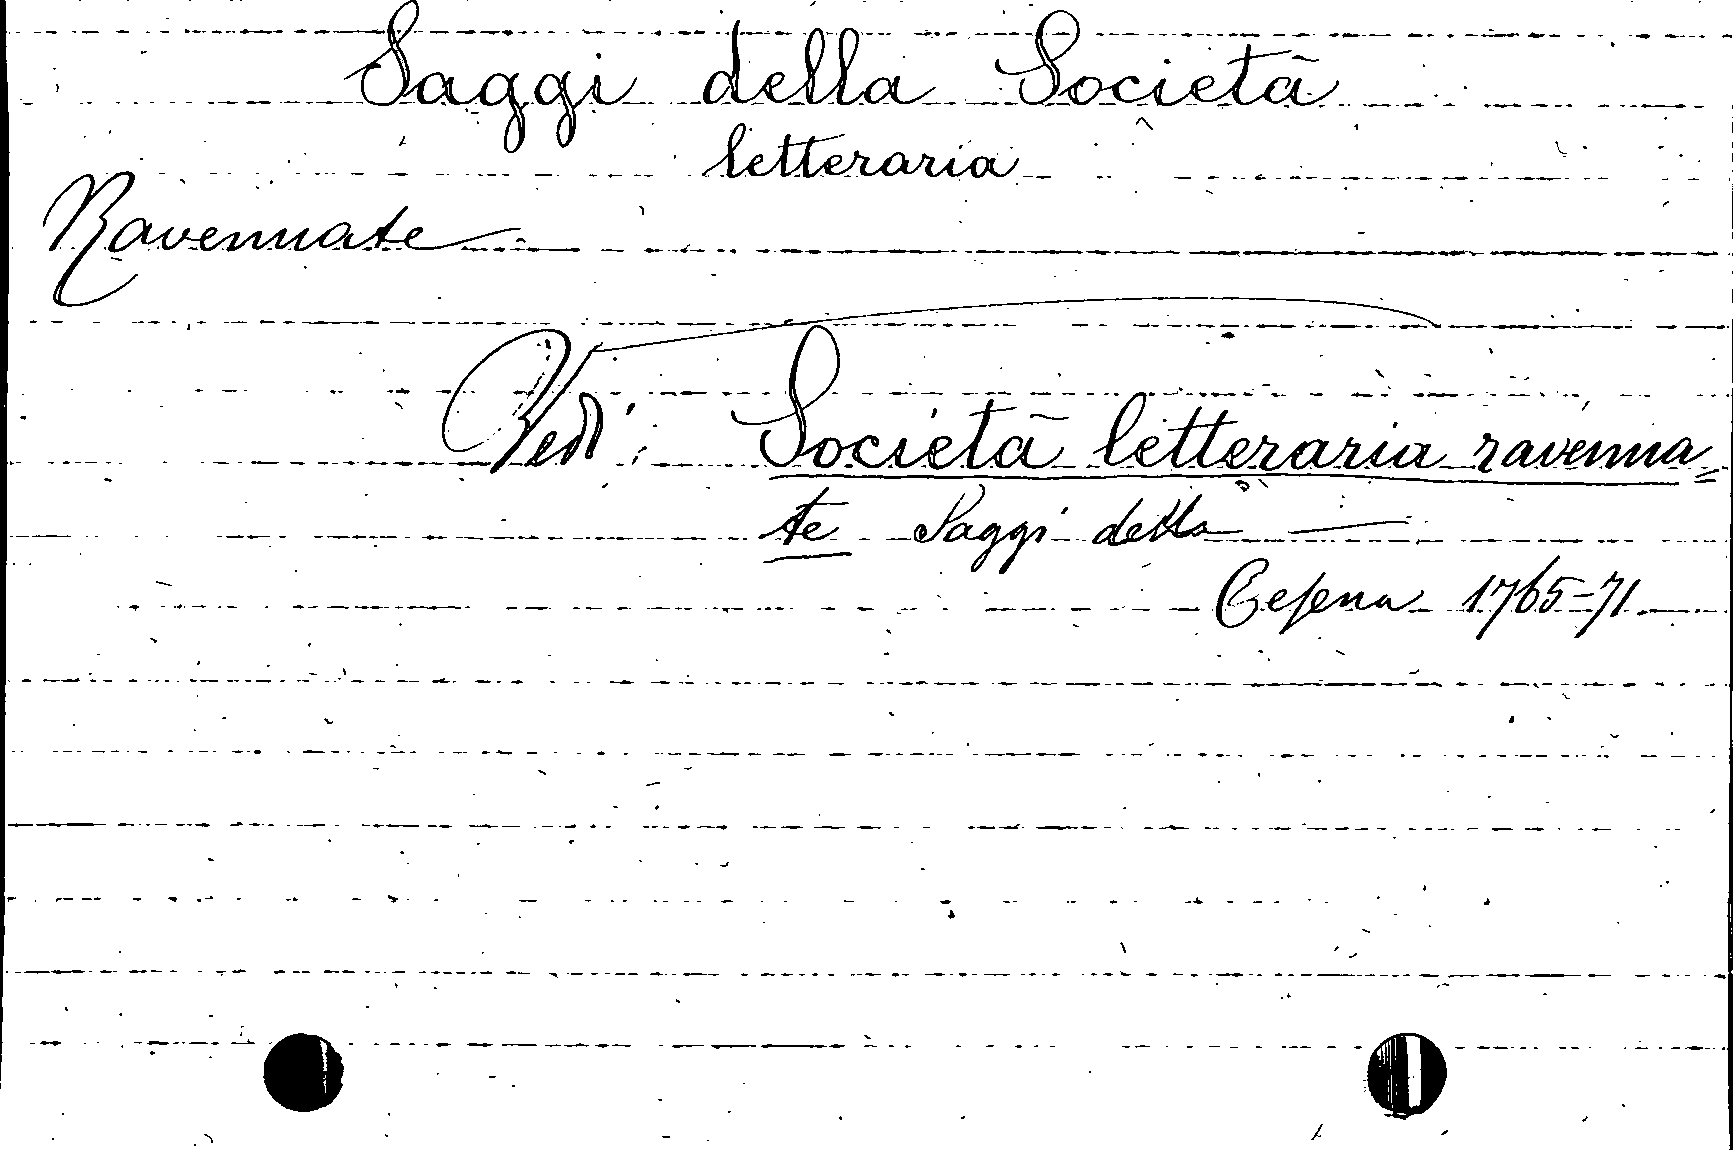 Saggi della Società
letteraria
Ravennate
Vedi: Società letteraria ravenna=
te Saggi della —
Cesena 1765-71